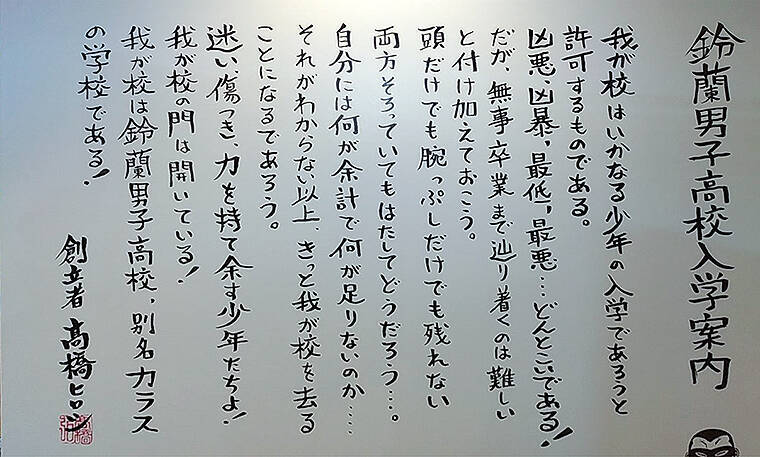 鈴蘭男子高校入学案内
我が校はいかなる少年の入学であろうと
許可するものである。
凶悪、凶暴、最低、最悪…どんとこいである!
だが、無事卒業まで辿り着くのは難しい
と付け加えておこう。
頭だけでも腕っぷしだけでも残れない
両方そろっていてもはたしてどうだろう…。
自分には何が余計で何が足りないのか……
それがわからない以上、きっと我が校を去る
ことになるであろう。
迷い、傷つき、力を持て余す少年たちよ!
我が校の門は開いている!
我が校は鈴蘭男子高校、別名カラス
の学校である!
創立者 髙橋ヒロシ